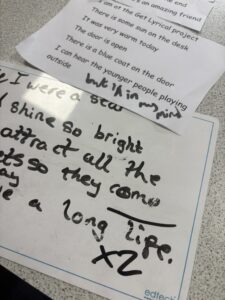 the end
an amazing friend
I am at the Get Lyrical project
There is some sun on the desk
It was very warm today
The door is open
There is a blue coat on the door
I can hear the younger people playing
outside
but I'm in my mind
I were a star
I shine so bright
attract all the
so they come
a long life.
x2
edtech